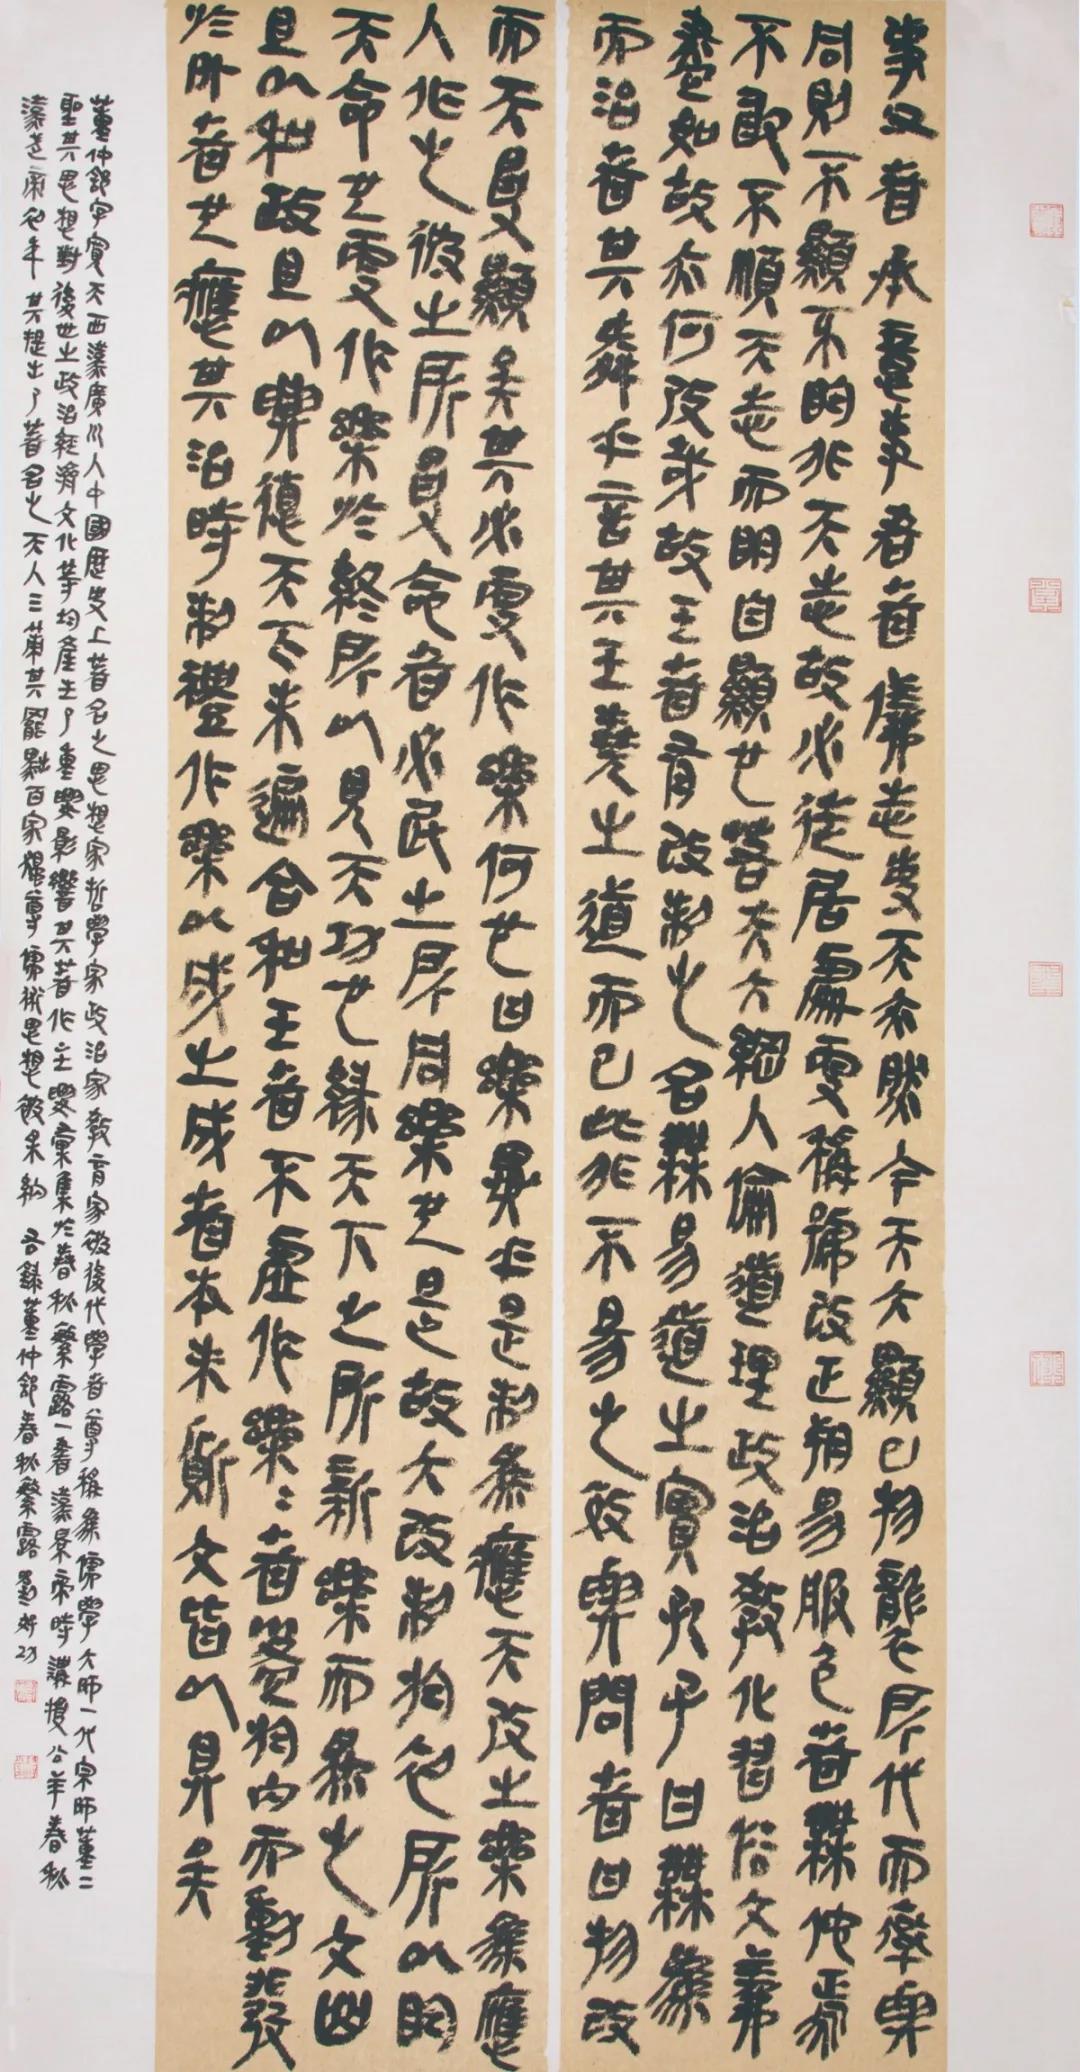 事父者承意事君者儀志事天亦然今天大顯已物襲所代而率與
同則不顯不明非天志故必徙居處更稱號改正朔易服色者無佗焉
不敢不順天志而明自顯也若夫大綱人倫道理政治教化習俗文義
盡如故亦何改哉故王者有改制之名無易道之實孔子曰無為
而治者其舜乎言其主堯之道而已此非不易之效與問者曰物改
而天受顯矣其必更作樂何也曰樂異乎是制為應天改之樂為應
人作之彼之所受命者必民之所同樂也是故大改制於初所以明
天命也更作樂於終所以見天功也緣天下之所新樂而為之文曲
且以和政且以興德天下未遍合和王者不虛作樂二者盈於內而動發
於外者也應其治時制禮作樂以成之成者本末質文皆以具矣
董仲舒字寬夫西漢廣川人中國歷史上著名之思想家哲學家政治家教育家被後代學者尊稱為儒學大師一代宗師董二
聖其思想對後世之政治經濟文化等均產生了重要影響其著作主要彙集於春秋繁露一書漢景帝時講授公羊春秋
漢武帝初年其提出了著名之天人三策其罷黜百家獨尊儒術思想被采納 右錄董仲舒春秋繁露